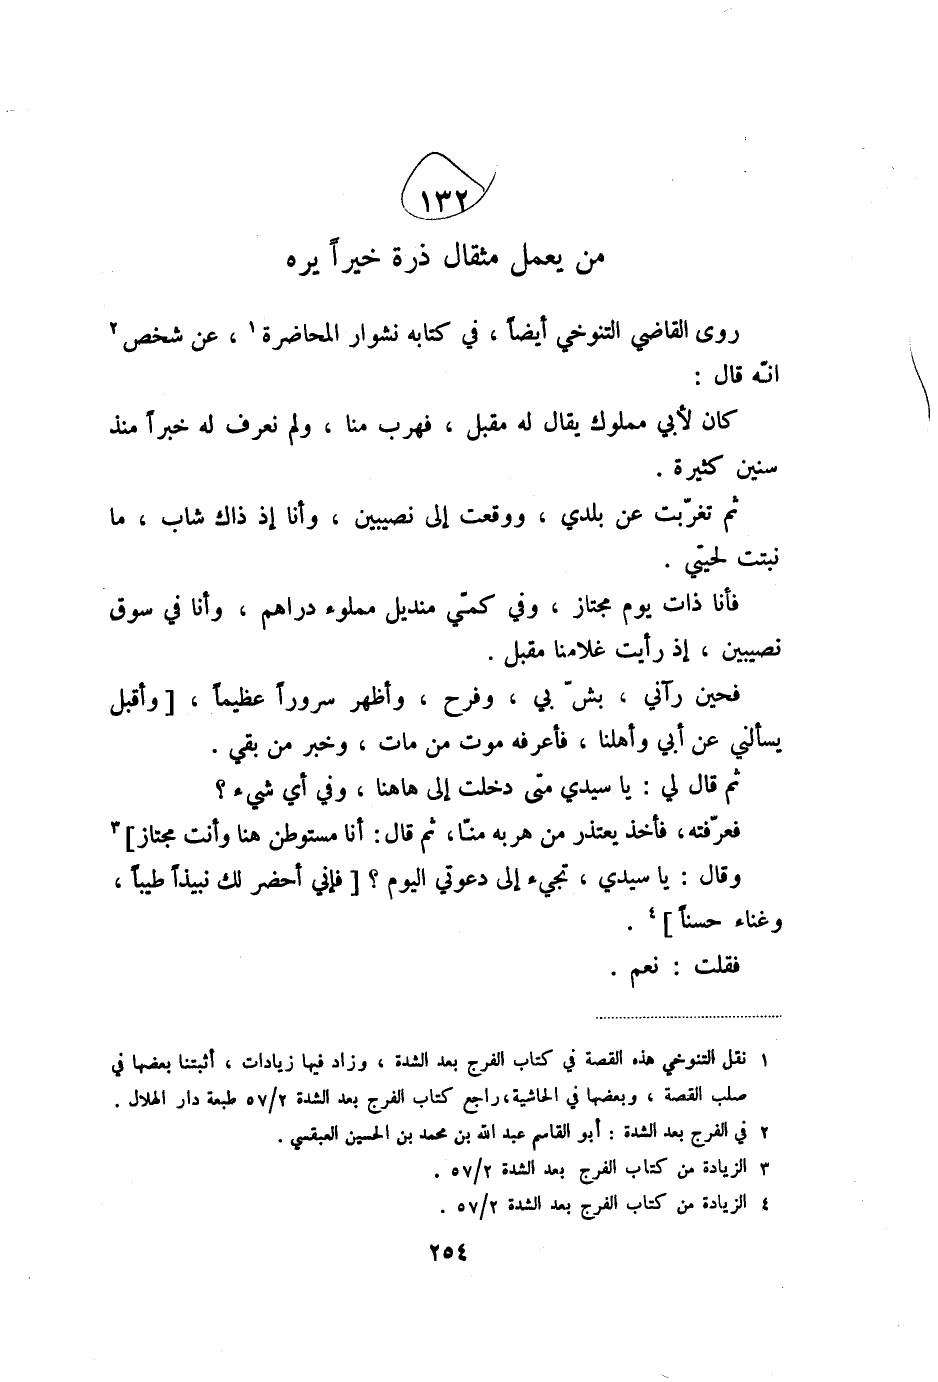 ١٣٢
من يعمل مثقال ذرة خيراً يره
روى القاضي التنوخي أيضاً ، في كتابه نشوار المحاضرة ١ ، عن شخص ٢
انّه قال :
كان لأبي مملوك يقال له مقبل ، فهرب منا ، ولم نعرف له خبراً منذ
سنين كثيرة .
ثم تغرّبت عن بلدي ، ووقعت إلى نصيبين ، وأنا إذ ذاك شاب ، ما
نبتت لحيتي .
فأنا ذات يوم مجتاز ، وفي كمّي منديل مملوء دراهم ، وأنا في سوق
نصيبين ، إذ رأيت غلامنا مقبل .
فحين رآني ، بشّ بي ، وفرح ، وأظهر سروراً عظيماً ، [ وأقبل
يسألني عن أبي وأهلنا ، فأعرفه موت من مات ، وخبر من بقي .
ثم قال لي : يا سيدي متى دخلت إلى هاهنا ، وفي أي شيء ؟
فعرّفته، فأخذ يعتذر من هربه منّا، ثم قال: أنا مستوطن هنا وأنت مجتاز] ٣
وقال : يا سيدي ، تجيء إلى دعوتي اليوم ؟ [ فإني أحضر لك نبيذاً طيباً ،
وغناء حسناً ] ٤ .
فقلت : نعم .
١ نقل التنوخي هذه القصة في كتاب الفرج بعد الشدة ، وزاد فيها زيادات ، أثبتنا بعضها في
صلب القصة ، وبعضها في الحاشية، راجع كتاب الفرج بعد الشدة ٥٧/٢ طبعة دار الهلال .
٢ في الفرج بعد الشدة : أبو القاسم عبد الله بن محمد بن الحسين العبقسي .
٣ الزيادة من كتاب الفرج بعد الشدة ٥٧/٢ .
٤ الزيادة من كتاب الفرج بعد الشدة ٥٧/٢ .
٢٥٤